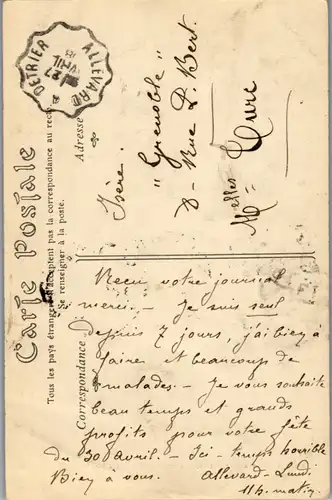 Carte Postale
Tous les pays étrangers n'acceptent pas la correspondance au recto
Se renseigner à la poste.
Correspondance
Adresse
ALLEVARD A DETRIER
27
AVRIL
Melles Cure
8 - Rue P. Bert.
"Grenoble"
Isère.
Reçu votre journal
merci. - Je suis seul
depuis 7 jours, j'ai bien à
faire et beaucoup de
malades. - Je vous souhaite
beau temps et grands
profits pour votre fête
du 30 avril. - Ici - temps horrible
Bien à vous. Allevard - Lundi
11h. matin